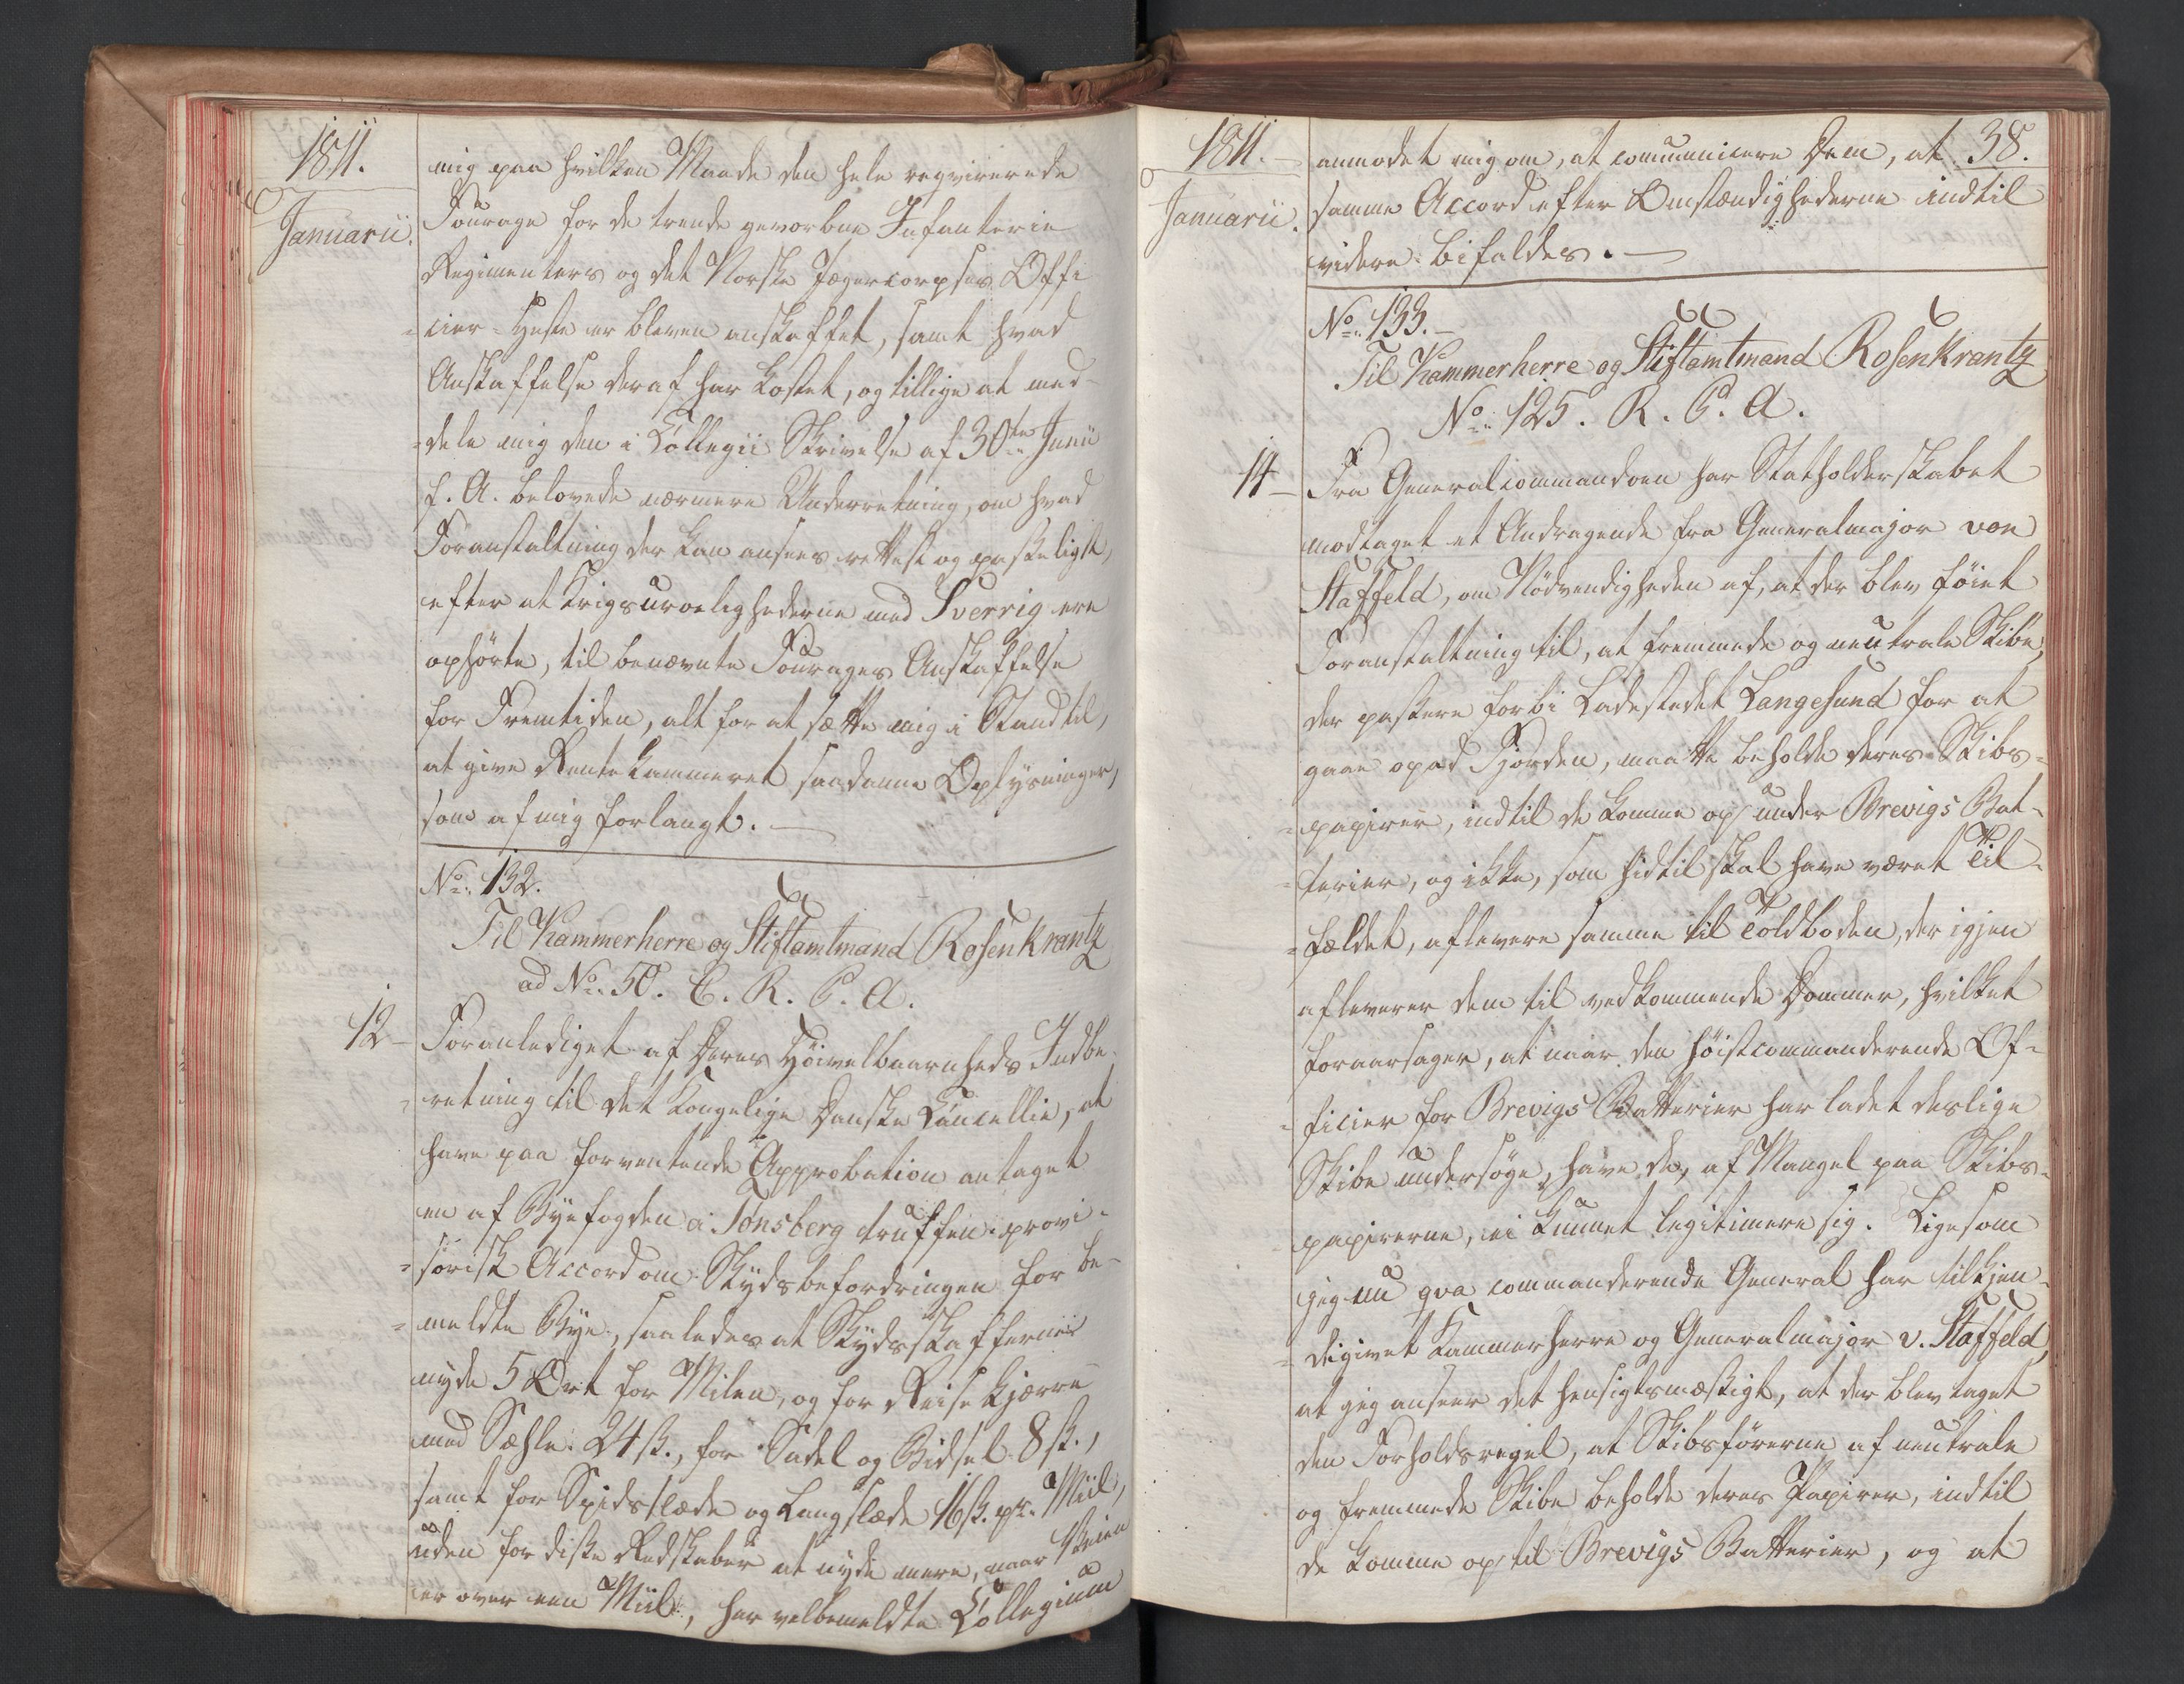 1811.
Januarii.
mig paa hvilken Maade den hele reqvirerede
Fourage for de trende gevorbne Infanterie
Regimenters og det Norske Jægercorpses Offi
-cier-Heste er bleven anskaffet, samt hvad
Anskaffelse deraf har kostet, og tillige at med-
-dele mig den i Collegii Skrivelse af 30te Junii
f. A. belovede nærmere Underretning, om hvad
Foranstaltning der kan ansees rettest og paskeligst,
efter at Krigsuroelighederne med Sverrig ere
ophörte, til benævnte Fourages Anskaffelse
for Fremtiden, alt for at sætte mig i Stand til,
at give Rentekammeret saadanne Oplysninger,
som af mig forlangt.
No. 132.
Til Kammerherre og Stiftamtmand Rosenkrantz
ad No. 50. C. R. P. A.
12 Foranlediget af Deres Höivelbaarnheds Indbe-
-retning til det Kongelige Danske Cancellie, at
have paa forventende Approbation antaget
en af Byefogden i Tønsberg truffen provi-
-sorisk Accord om Skydsbefordringen for be-
-meldte Bye, saaledes at Skydsskafferne
nyde 5 Ort for Milen, og for Reise Kjærre
med Sæhle 24 ß., for Sadel og Bidsel 8 ß.,
samt for Spidsslæde og Langslæde 16 ß. pr. Miil,
uden for diße Redskaber at nyde mere, naar Veien
er over een Miil, har velbemeldte Collegium
1811.
Januarii.
38.
anmodet mig om, at communicere Dem, at
samme Accord efter Omstændighederne indtil
videre bifaldes.
No. 133.
Til Kammerherre og Stiftamtmand Rosenkrantz
No. 125. R. P. A.
14 Fra Generalcommandoen har Statholderskabet
modtaget et Andragende fra Generalmajor von
Staffeld, om Nödvendigheden af, at der blev föiet
Foranstaltning til, at fremmede og neutrale Skibe,
der paßere forbi Ladestedet Langesund for at
gaae opad Fjorden, maatte beholde deres Skibs-
-papirer, indtil de komme op under Brevigs Bat-
-terier, og ikke, som hidtil skal have været Til-
-fældet, aflevere samme til Toldboden, der igjen
afleverer dem til vedkommende Dommer, hvilket
foraarsager, at naar den höistcommanderende Of-
-ficier for Brevigs Batterier har ladet deslige
Skibe undersöge, have de, af Mangel paa Skibs-
papirerne, ei kunnet legitimere sig. Ligesom
jeg nu qva commanderende General har tilkjen-
-degivet Kammerherre og Generalmajor v. Staffeld,
at jeg anseer det hensigtsmæßigt, at der blev taget
den Forholdsregel, at Skibsförerne af neutrale
og fremmede Skibe beholde deres Papirer, indtil
de komme op til Brevigs Batterier, og at